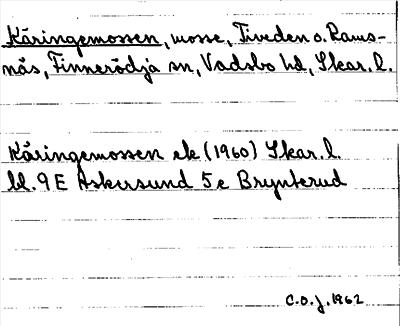 Käringemossen, mosse, Tiveden o. Rams-
näs, Finnerödja sn, Vadsbo hd, Skar. l.
Käringemossen ek (1960) Skar. l.
bl. 9 E Askersund 5 e Brynterud
C.O.J. 1962